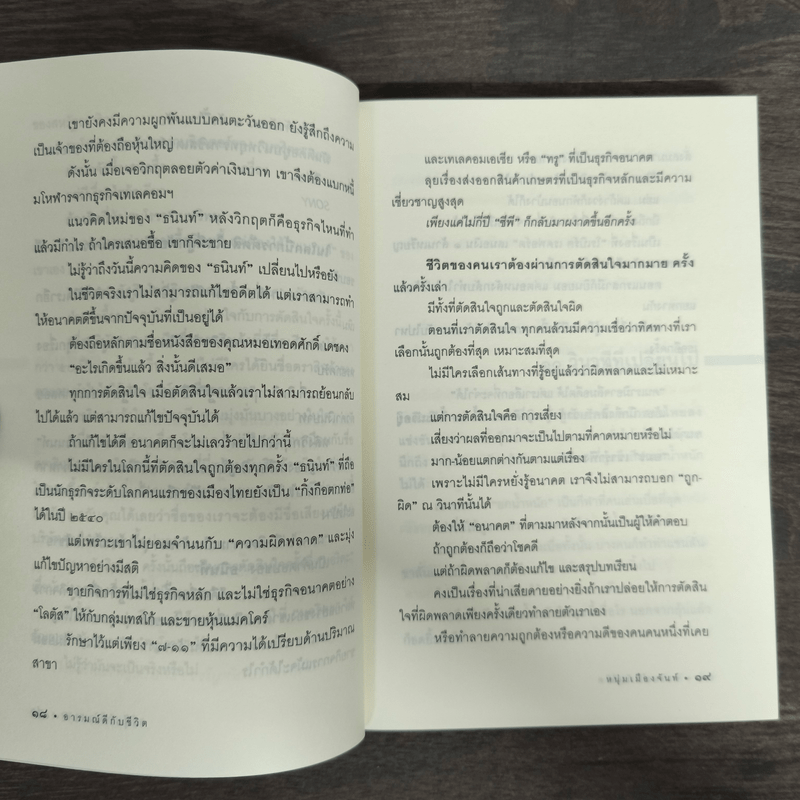 เขายังคงมีความผูกพันแบบคนตะวันออก ยังรู้สึกถึงความ
เป็นเจ้าของที่ต้องถือหุ้นใหญ่
ดังนั้น เมื่อเจอวิกฤตลอยตัวค่าเงินบาท เขาจึงต้องแบกหนี้
มโหฬารจากธุรกิจเทเลคอมฯ
แนวคิดใหม่ของ “ธนินท์” หลังวิกฤตก็คือธุรกิจไหนที่ทำ
แล้วมีกำไร ถ้าใครเสนอซื้อ เขาก็จะขาย
ไม่รู้ว่าถึงวันนี้ความคิดของ “ธนินท์” เปลี่ยนไปหรือยัง
ในชีวิตจริงเราไม่สามารถแก้ไขอดีตได้ แต่เราสามารถทำ
ให้อนาคตดีขึ้นจากปัจจุบันที่เป็นอยู่ได้
ต้องถือหลักตามชื่อหนังสือของคุณหมอเทอดศักดิ์ เดชคง
“อะไรเกิดขึ้นแล้ว สิ่งนั้นดีเสมอ”
ทุกการตัดสินใจ เมื่อตัดสินใจแล้วเราไม่สามารถย้อนกลับ
ไปได้แล้ว แต่สามารถแก้ไขปัจจุบันได้
ถ้าแก้ไขได้ดี อนาคตก็จะไม่เลวร้ายไปกว่านี้
ไม่มีใครในโลกนี้ที่ตัดสินใจถูกต้องทุกครั้ง “ธนินท์” ที่ถือ
เป็นนักธุรกิจระดับโลกคนแรกของเมืองไทยยังเป็น “กิ้งกือตกท่อ”
ได้ในปี ๒๕๔๐
แต่เพราะเขาไม่ยอมจำนนกับ “ความผิดพลาด” และมุ่ง
แก้ไขปัญหาอย่างมีสติ
ขายกิจการที่ไม่ใช่ธุรกิจหลัก และไม่ใช่ธุรกิจอนาคตอย่าง
“โลตัส” ให้กับกลุ่มเทสโก้ และขายหุ้นแมคโคร์
รักษาไว้แต่เพียง “๗-๑๑” ที่มีความได้เปรียบด้านปริมาณ
สาขา
๑๘ • อารมณ์ดีกับชีวิต
และเทเลคอมเอเชีย หรือ “ทรู” ที่เป็นธุรกิจอนาคต
ลุยเรื่องส่งออกสินค้าเกษตรที่เป็นธุรกิจหลักและมีความ
เชี่ยวชาญสูงสุด
เพียงแค่ไม่กี่ปี “ซีพี” ก็กลับมาผงาดขึ้นอีกครั้ง
ชีวิตของคนเราต้องผ่านการตัดสินใจมากมาย ครั้ง
แล้วครั้งเล่า
มีทั้งที่ตัดสินใจถูกและตัดสินใจผิด
ตอนที่เราตัดสินใจ ทุกคนล้วนมีความเชื่อว่าทิศทางที่เรา
เลือกนั้นถูกต้องที่สุด เหมาะสมที่สุด
ไม่มีใครเลือกเส้นทางที่รู้อยู่แล้วว่าผิดพลาดและไม่เหมาะ
สม
แต่การตัดสินใจคือ การเสี่ยง
เสี่ยงว่าผลที่ออกมาจะเป็นไปตามที่คาดหมายหรือไม่
มาก-น้อยแตกต่างกันตามแต่เรื่อง
เพราะไม่มีใครหยั่งรู้อนาคต เราจึงไม่สามารถบอก “ถูก-
ผิด” ณ วินาทีนั้นได้
ต้องให้ “อนาคต” ที่ตามมาหลังจากนั้นเป็นผู้ให้คำตอบ
ถ้าถูกต้องก็ถือว่าโชคดี
แต่ถ้าผิดพลาดก็ต้องแก้ไข และสรุปบทเรียน
คงเป็นเรื่องที่น่าเสียดายอย่างยิ่งถ้าเราปล่อยให้การตัดสิน
ใจที่ผิดพลาดเพียงครั้งเดียวทำลายตัวเราเอง
หรือทำลายความถูกต้องหรือความดีของคนคนหนึ่งที่เคย
หนุ่มเมืองจันท์ • ๑๙